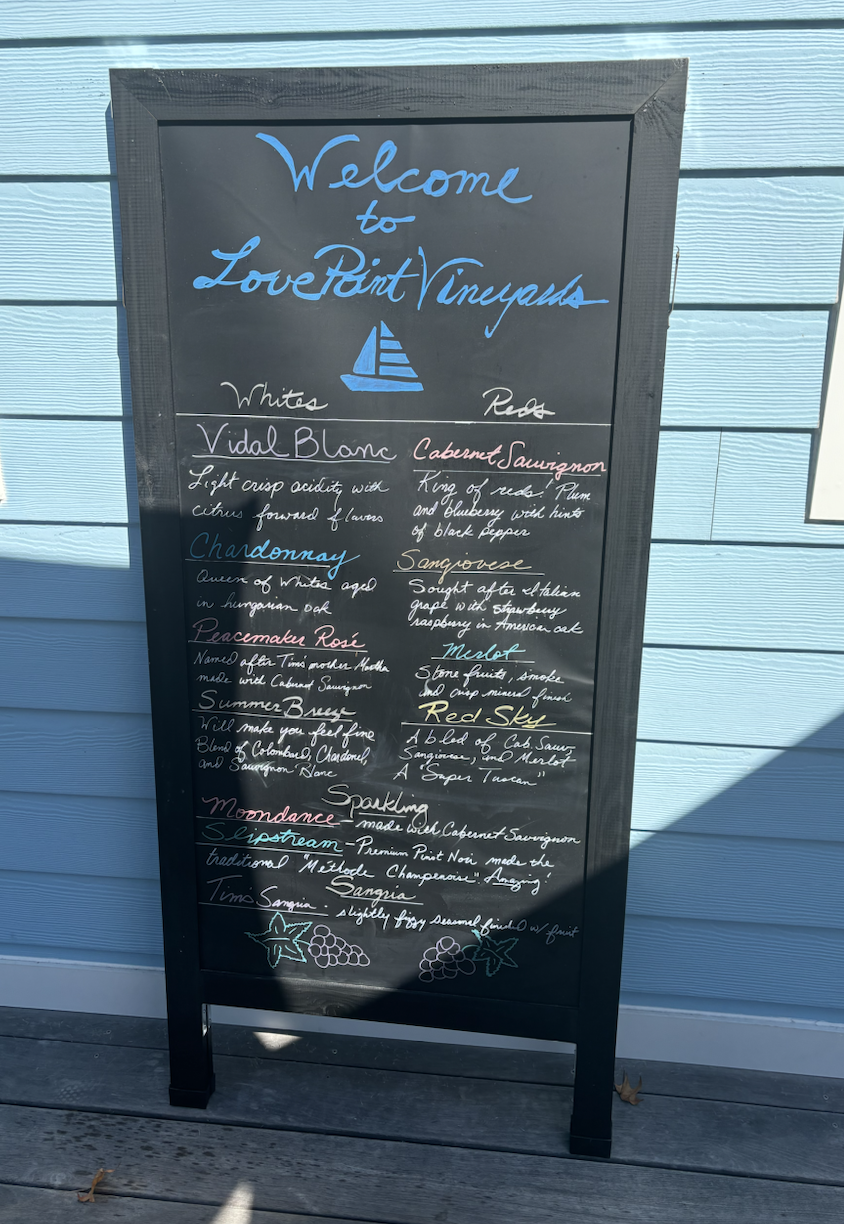 Welcome
to
Love Point Vineyards
Whites
Vidal Blanc
Light crisp acidity with
citrus forward flavors
Chardonnay
Queen of Whites aged
in hungarian oak
Peacemaker Rosé
Named after Tim's mother Martha
made with Cabernet Sauvignon
Summer Breeze
Will make you feel fine
Blend of Colombard, Chardonel,
and Sauvignon Blanc
Reds
Cabernet Sauvignon
King of reds! Plum
and blueberry with hints
of black pepper
Sangiovese
Sought after Italian
grape with strawberry
raspberry in American oak
Merlot
Stone fruits, smoke
and crisp mineral finish
Red Sky
A bled of Cab. Sauv.
Sangiovese, and Merlot
A "Super Tuscan"
Sparkling
Moondance - made with Cabernet Sauvignon
Slipstream - Premium Pinot Noir made the
traditional "Méthode Champenoise". Amazing!
Sangria
Tim's Sangria - slightly fizzy seasonal finished w/ fruit